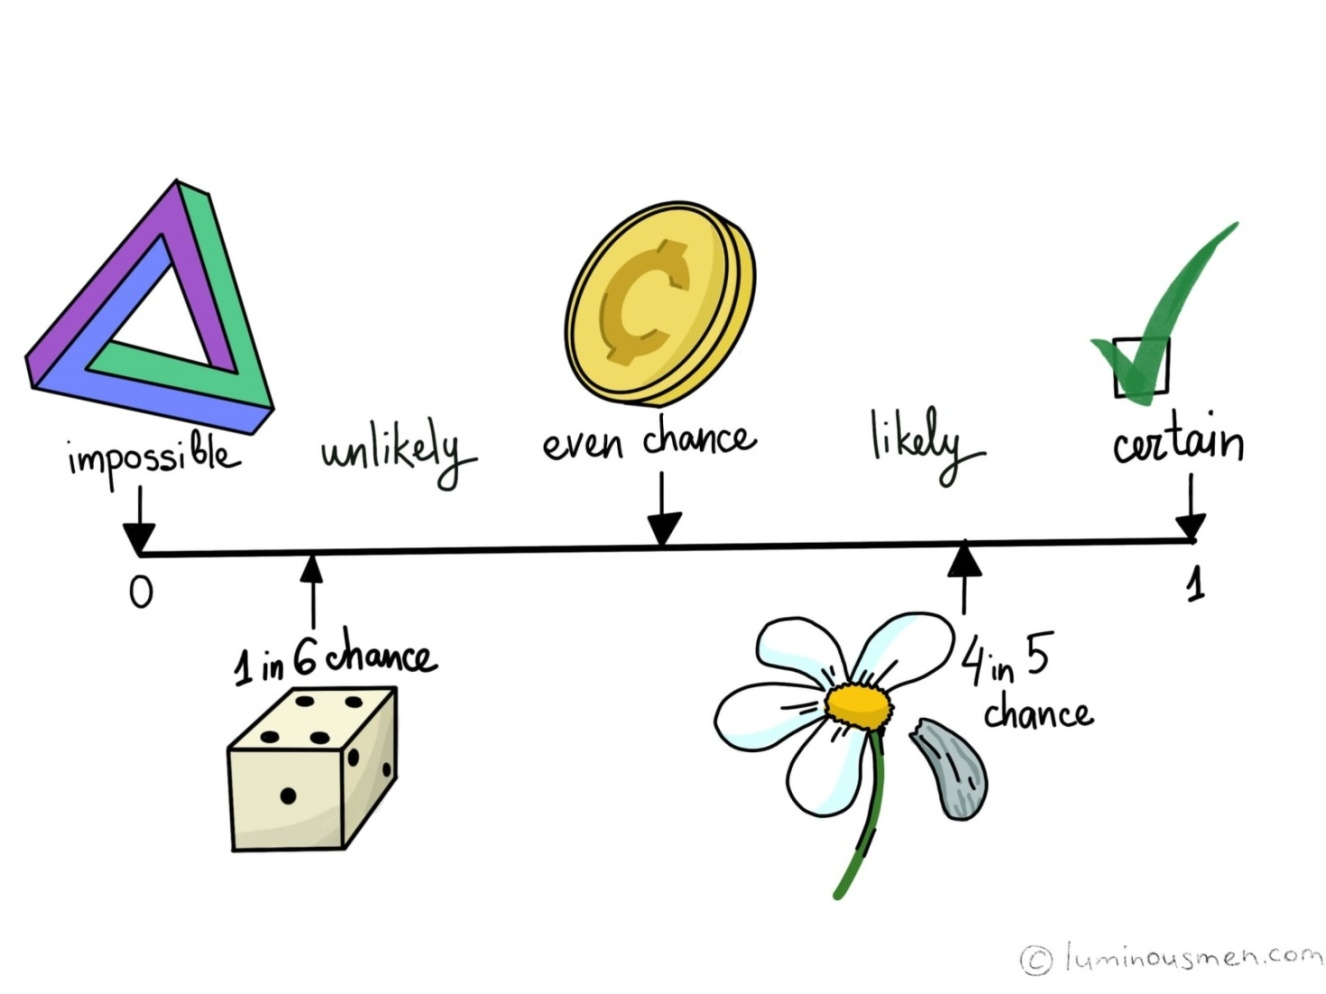 impossible
unlikely
even chance
likely
certain
0
1
1 in 6 chance
4 in 5
chance
© luminousmen.com